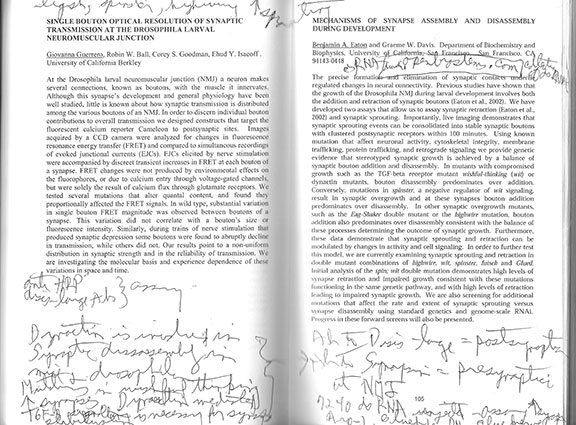 spinster, highwire
SINGLE BOUTON OPTICAL RESOLUTION OF SYNAPTIC
TRANSMISSION AT THE DROSOPHILA LARVAL
NEUROMUSCULAR JUNCTION
Giovanna Guerrero, Robin W. Ball, Corey S. Goodman, Ehud Y. Isacoff.
University of California Berkley
At the Drosophila larval neuromuscular junction (NMJ) a neuron makes
several connections, known as boutons, with the muscle it innervates.
Although this synapse's development and general physiology have been
well studied, little is known about how synaptic transmission is distributed
among the various boutons of an NMJ. In order to discern individual bouton
contributions to overall transmission we designed constructs that target the
fluorescent calcium reporter Cameleon to postsynaptic sites. Images
acquired by a CCD camera were analyzed for changes in fluorescence
resonance energy transfer (FRET) and compared to simultaneous recordings
of evoked junctional currents (EJCs). EJCs elicited by nerve stimulation
were accompanied by discreet transient increases in FRET at each bouton of
a synapse. FRET changes were not produced by environmental effects on
the fluorophores, or due to calcium entry through voltage-gated channels,
but were solely the result of calcium flux through glutamate receptors. We
tested several mutations that alter quantal content, and found they
proportionally affected the FRET signals. In wild type, substantial variation
in single bouton FRET magnitude was observed between boutons of a
synapse. This variation did not correlate with a bouton's size or
fluorescence intensity. Similarly, during trains of nerve stimulation that
produced synaptic depression some boutons were found to abruptly decline
in transmission, while others did not. Our results point to a non-uniform
distribution in synaptic strength and in the reliability of transmission. We
are investigating the molecular basis and experience dependence of these
variations in space and time.
anti HRP
assay
Dynactin is involved in
synaptic disassembly in
drosophila
synapses Dynactin mediated
TGF-B is necessary for synapse
MECHANISMS OF SYNAPSE ASSEMBLY AND DISASSEMBLY
DURING DEVELOPMENT
Benjamin A. Eaton and Graeme W. Davis. Department of Biochemistry and
Biophysics, University of California, San Francisco, San Francisco, CA
94143-0448
The precise formation and elimination of synaptic contacts
regulated changes in neural connectivity. Previous studies have shown that
the growth of the Drosophila NMJ during larval development involves both
the addition and extraction of synaptic boutons (Eaton et al., 2002). We have
developed two assays that allow us to assay synaptic retraction (Eaton et al.,
2002) and synaptic sprouting. Importantly, live imaging demonstrates that
synaptic sprouting events can be consolidated into stable synaptic boutons
with clustered postsynaptic receptors within 100 minutes. Using known
mutation that affect neuronal activity, cytoskeletal integrity, membrane
trafficking, protein trafficking, and retrograde signaling we provide genetic
evidence that stereotyped synaptic growth is achieved by a balance of
synaptic bouton addition and disassembly. In mutants with compromised
growth such as the TGF-beta receptor mutant wishful-thinking (wit) or
dynactin mutants, bouton disassembly predominates over addition.
Conversely, mutations in spinster, a negative regulator of wit signaling,
result in synaptic overgrowth and at these synapses bouton addition
predominates over disassembly. In other synaptic overgrowth mutants,
such as the Eag-Shaker double mutant or the highwire mutation, bouton
addition also predominates over disassembly consistent with the balance of
these processes determining the outcome of synaptic growth. Furthermore,
these data demonstrate that synaptic sprouting and retraction can be
modulated by changes in activity and cell signaling. In order to further test
this model, we are currently examining synaptic sprouting and retraction in
double mutant combinations of highwire, wit, spinster, futsch and Glued.
Initial analysis of the spin; wit double mutation demonstrates high levels of
synapse retraction and impaired growth consistent with these mutations
functioning in the same genetic pathway, and with high levels of retraction
leading to impaired synaptic growth. We are also screening for additional
mutations that affect the rate and extent of synaptic sprouting versus
synapse disassembly using standard genetics and genome-scale RNAi.
Progress in these forward screens will also be presented.
Ab to Discs-large = postsynaptic
Ab to Synapsin = presynaptic
at NMJ
105
7240 ds RNA